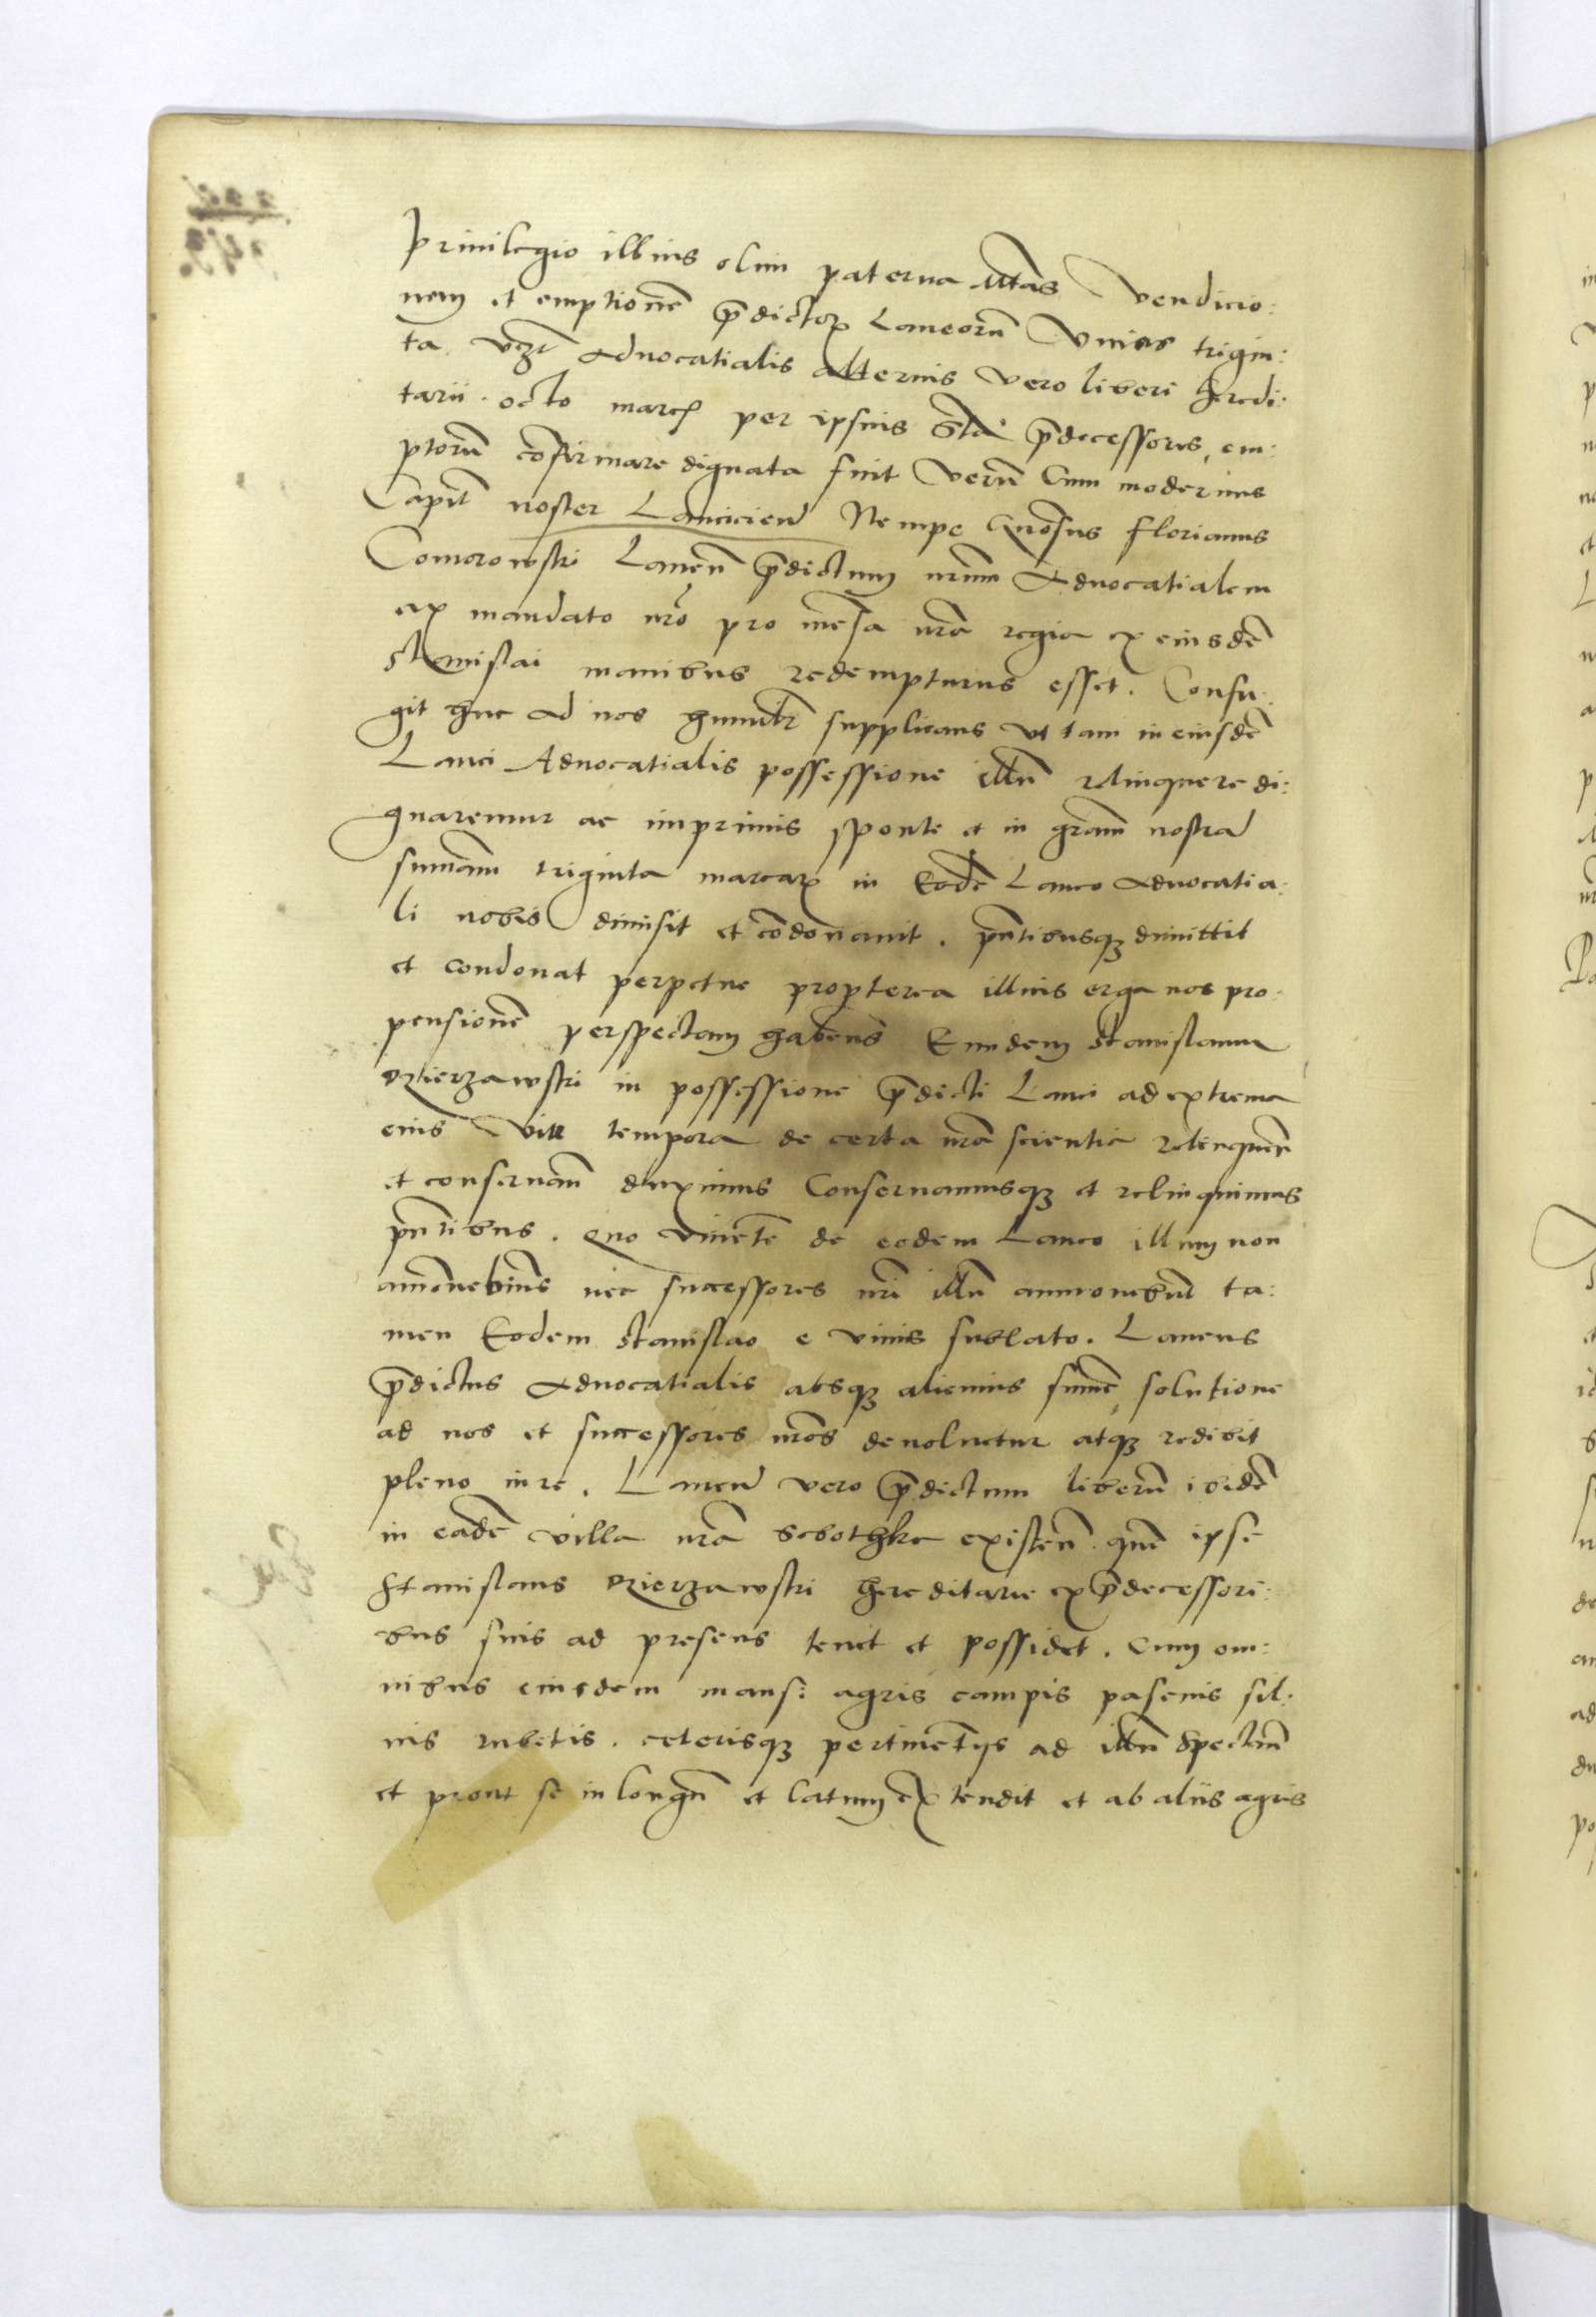 privilegio illius olim paterna Mtas vendicio:
nem et emptionē p̄dictoꝝ Laneorū Unius trigin:
ta vꝫt advocatialis alterius vero liberi heredi:
tarii. octo marcꝭ per ipsius p̄decessores, em:
ptorū cōfirmare dignata fuit Verū Cum modernus
Capit noster Lancicien Nempe Gnōsus Florianus
Comorowski Laneū p̄dictum nrum Advocatialem
ex mandato nrō pro mēsa nrā regia ex eiusdē
Stanislai manibus redempturus esset. Confu:
git huc ad nos humilr supplicans ut tam in eiusdē
Lanei Advocatialis possessione illū relinquere di:
gnaremur ac imprimis sponte et in grām nostrā
summam triginta marcarꝝ in Eodē Laneo advocatia:
li nobis dimisit et cōdonavit. pn̄tibusqꝫ dimittit
et condonat perpetue propterea illius erga nos pro:
pensionē perspectam habens Eundem Stanislaum
Dzierzawski in possessione p̄dicti Lanei ad extrema
eius vite tempora de certa nrā scientia relinquen
et conservan duximus Conservamusqꝫ et relinquimus
pn̄tibus. Quo vivētē de eodem Laneo illum non
amovebimus nec successores nrī illū ammovebunt ta:
men Eodem Stanislao e vivis sublato. Laneus
p̄dictus advocatialis absqꝫ alicuius summe solutione
ad nos et successores nrōs devolvetur atqꝫ redibit
pleno iure. Laneū vero p̄dictum liberū ibidē
in eadē villa nrā Sobothka existen quē ipse
Stanislaus Dzierzawski hereditarie ex p̄decessori:
bus suis ad presens tenet et possidet. Cum om:
nibus eiusdem mans: agris campis pascuis sil:
vis rubetis. ceterisqꝫ pertinētijs ad illū spectan
et prout se in longū et latum extendit et ab aliis agris